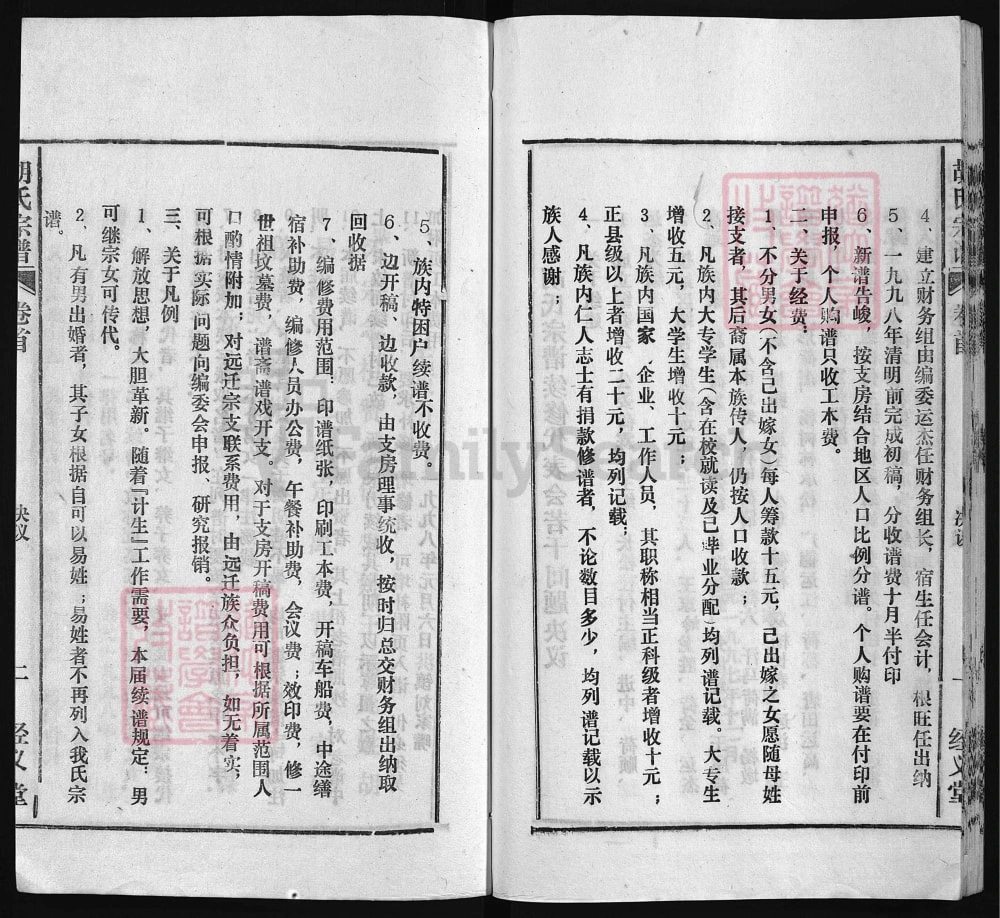 胡氏宗谱
卷首
决议
一
经义堂
4、建立财务组由编委运杰任财务组长，宿生任会计，根旺任出纳
5、一九九八年清明前完成初稿，分收谱费十月半付印
6、新谱告峻，按支房结合地区人口比例分谱。个人购谱要在付印前
申报，个人购谱只收工本费。
二、关于经费：
1、不分男女（不含己出嫁女）每人筹款十五元，己出嫁之女愿随母姓
接支者，其后裔属本族传人，仍按人口收款；
2、凡族内大专学生（含在校就读及己毕业分配）均列谱记载。大专生
增收五元，大学生增收十元；
3、凡族内国家、企业、工作人员，其职称相当正科级者增收十元；
正县级以上者增收二十元，均列记载；
4、凡族内仁人志士有捐款修谱者，不论数目多少，均列谱记载以示
族人感谢；
5、族内特困户续谱不收费。
6、边开稿，边收款，由支房理事统收，按时归总交财务组出纳取
回收据
7、编修费用范围：印谱纸张，印刷工本费，开稿车船费，中途缮
宿补助费，编修人员办公费，午餐补助费，会议费；效印费，修一
世祖坟墓费，谱斋谱戏开支。对于支房开稿费用可根据所属范围人
口酌情附加；对远迁宗支联系费用，由远迁族众负担，如无着实，
可根据实际问题向编委会申报、研究报销。
三、关于凡例
1、解放思想，大胆革新。随着『计生』工作需要，本届续谱规定：男
可继宗女可传代。
2、凡有男出婚者，其子女根据自可以易姓；易姓者不再列入我氏宗
谱。
胡氏宗谱
卷首
决议
二
经义堂
FamilySearch